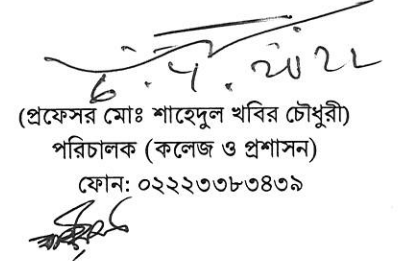 6.4.2022
(প্রফেসর মোঃ শাহেদুল খবির চৌধুরী)
পরিচালক (কলেজ ও প্রশাসন)
ফোন: ০২২২৩৩৮৩৪৩৯